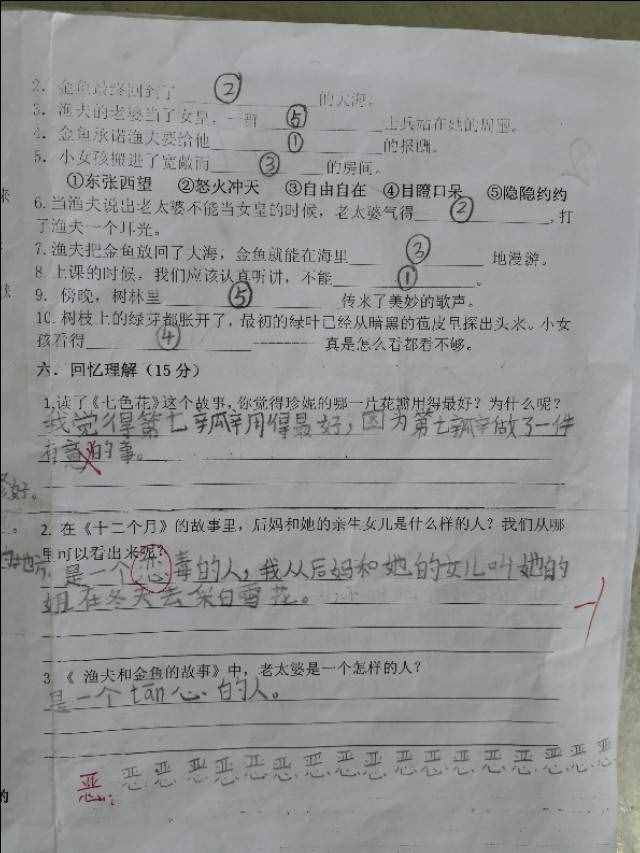 2. 金鱼最终回到了 ② 的大海。
3. 渔夫的老婆当了女皇，一群 ⑤ 士兵站在她的周围。
4. 金鱼承诺渔夫要给他 ① 的报酬。
5. 小女孩搬进了宽敞而 ③ 的房间。
①东张西望 ②怒火冲天 ③自由自在 ④目瞪口呆 ⑤隐隐约约
6.当渔夫说出老太婆不能当女皇的时候，老太婆气得 ② ,打
了渔夫一个耳光。
7.渔夫把金鱼放回了大海，金鱼就能在海里 ③ 地漫游。
8.上课的时候，我们应该认真听讲，不能 ① 。
9. 傍晚，树林里 ⑤ 传来了美妙的歌声。
10.树枝上的绿芽都胀开了，最初的绿叶已经从暗黑的苞皮里探出头来。小女
孩看得 ④ 真是怎么看都看不够。
六．回忆理解（15分）
1.读了《七色花》这个故事，你觉得珍妮的哪一片花瓣用得最好？为什么呢？
我觉得第七瓣用得最好，因为第七瓣做了一件
有意的事。
好。
2. 在《十二个月》的故事里，后妈和她的亲生女儿是什么样的人？我们从哪
里可以看出来呢？
是一个恶毒的人，我从后妈和她的女儿叫她的
姐在冬天去采白雪花。
3.《 渔夫和金鱼的故事》中，老太婆是一个怎样的人？
是一个tān心的人。
恶: 恶 恶 恶 恶 恶 恶 恶 恶 恶 恶 恶 恶 恶 恶 恶 恶 恶